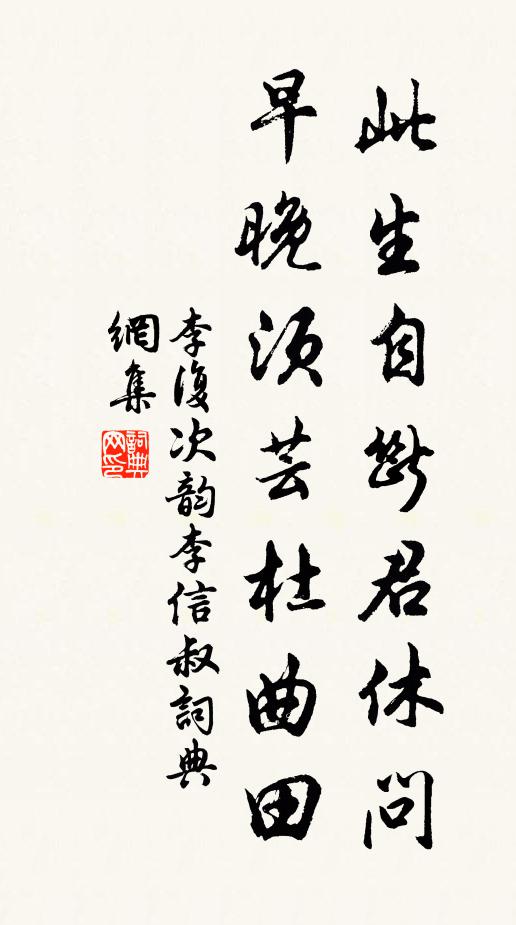 此生自斷君休問
早晚須芸杜曲田
李復次韵李信叔詞典
網集
詞典
网印